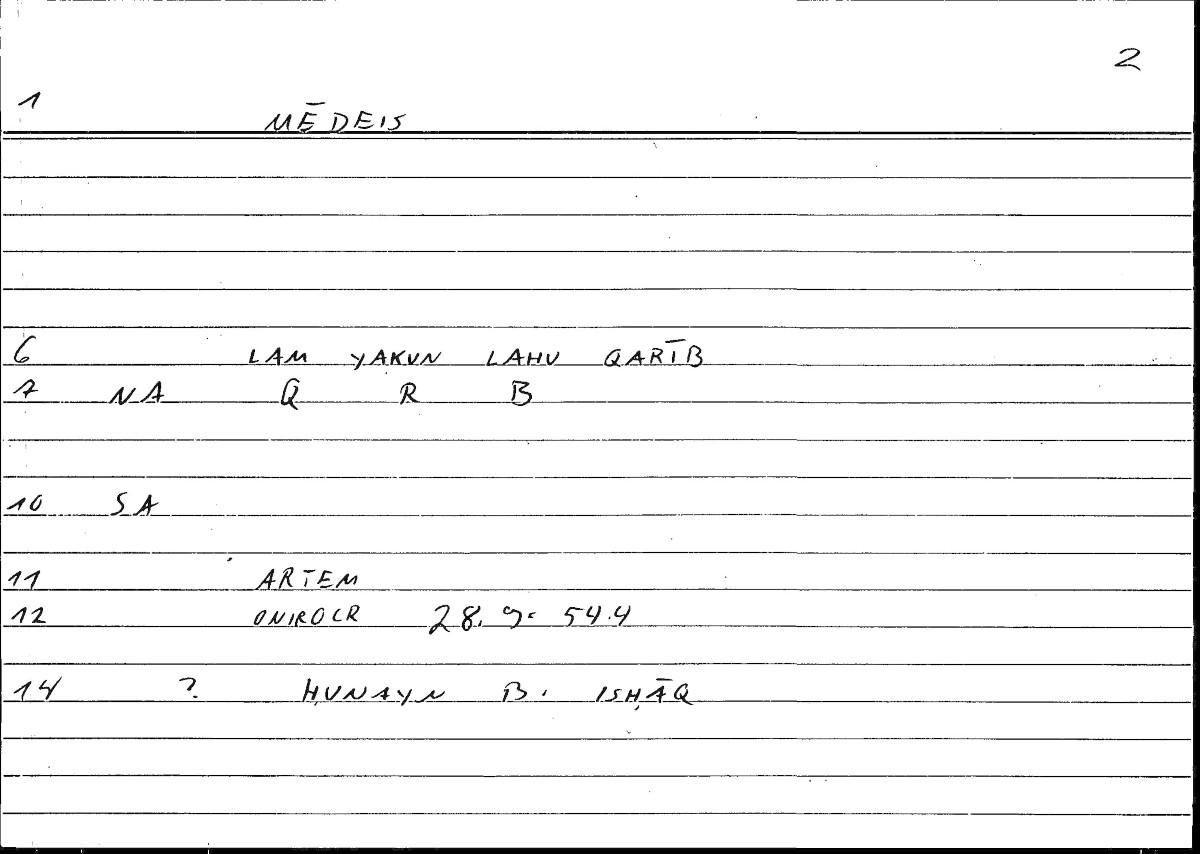 2
1 MĒDEIS
6 LAM YAKUN LAHU QARĪB
7 NA Q R B
10 SA
11 ARTEM
12 ONIROCR 28. 9= 54.4
14 ? ḤUNAYN B. ISḤĀQ